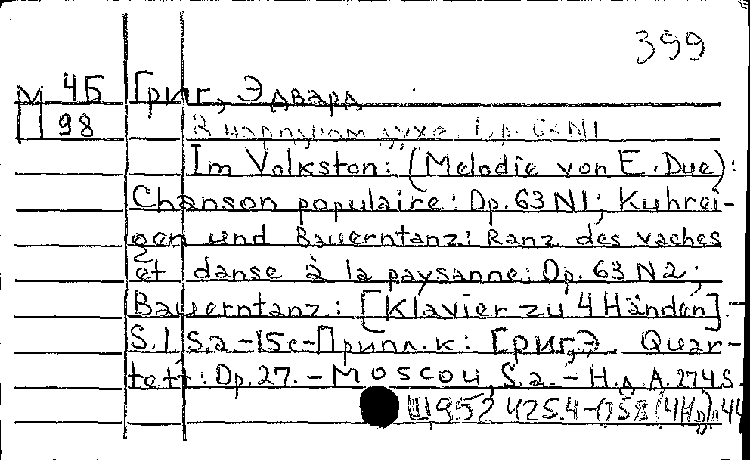 399
М 4Б Григ, Эдвард
П 98 В народном духе: Op. 63 N1
Im Volkston: (Melodie von E. Due):
Chanson populaire: Op. 63 N1; Kuhrei-
gen und Bauerntanz: Ranz des vaches
et danse à la paysanne: Op. 63 N2;
Bauerntanz: [Klavier zu 4 Händen].-
S.l S.a -15c-Припл.к: Григ,Э. Quar-
tett: Op.27. - Moscou, S.a. - Н.д. А.274S.
Щ952 425.4-058(4Нр)